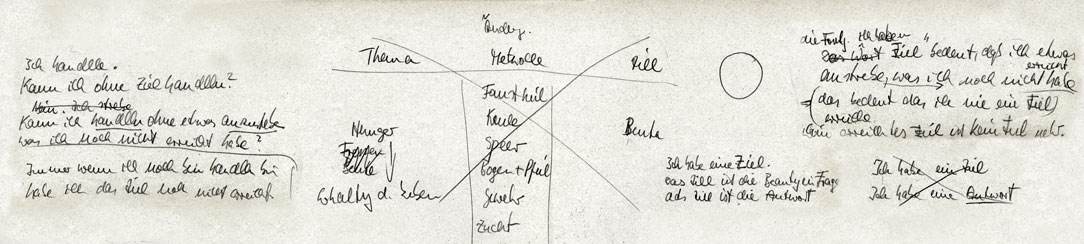 Ich handle.
Kann ich ohne Ziel handeln?
Nein. Ich strebe
Kann ich handeln ohne etwas anzustreben
was ich noch nicht erreicht habe?
Immer wenn ich noch beim handeln bin
habe ich das Ziel noch nicht erreicht.
Änderg.
Thema Methode Ziel
Faustkeil
Keule
Speer
Bogen + Pfeil
Gewehr
Zucht
Hunger
Erhaltg d. Leben
Beute
die Ich haben
Das Wort Ziel bedeut, daß ich etwas
anstrebe, was ich noch nicht habe
erreicht
(das bedeut das ich nie ein Ziel)
erreiche
Ein erreichtes Ziel ist kein Ziel mehr.
Ich habe eine Ziel.
das Ziel ist die in Frage
das ist die Antwort
Ich habe ein Ziel
Ich habe eine Antwort